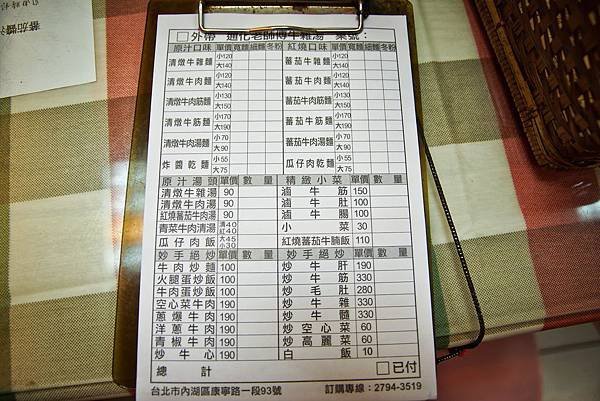 蕃茄醬汁
□外帶 通化老師傅牛雜湯 桌號：
原汁口味 單價 寬麵 細麵 冬粉 紅燒口味 單價 寬麵 細麵 冬粉
清燉牛雜麵 小120 大140 蕃茄牛雜麵 小120 大140
清燉牛肉麵 小120 大140 蕃茄牛肉麵 小120 大140
清燉牛肉筋麵 小130 大150 蕃茄牛肉筋麵 小130 大150
清燉牛筋麵 小170 大190 蕃茄牛筋麵 小170 大190
清燉牛肉湯麵 小70 大90 蕃茄牛肉湯麵 小70 大90
炸醬乾麵 小55 大75 瓜仔肉乾麵 小55 大75
原汁湯頭 單價 數量 精緻小菜 單價 數量
清燉牛雜湯 90 滷牛筋 150
清燉牛肉湯 90 滷牛肚 100
紅燒蕃茄牛肉湯 90 滷牛腸 100
青菜牛肉清湯 清40 紅40 小菜 30
瓜仔肉飯 大45 小30 紅燒蕃茄牛腩飯 110
妙手絕炒 單價 數量 妙手絕炒 單價 數量
牛肉炒麵 100 炒牛肝 190
火腿蛋炒飯 100 炒牛筋 330
牛肉蛋炒飯 100 炒毛肚 280
空心菜牛肉 190 炒牛雜 330
蔥爆牛肉 190 炒牛髓 330
洋蔥牛肉 190 炒空心菜 60
青椒牛肉 190 炒高麗菜 60
炒牛心 190 白飯 10
總計 □已付
台北市內湖區康寧路一段93號 訂購專線：2794-3519